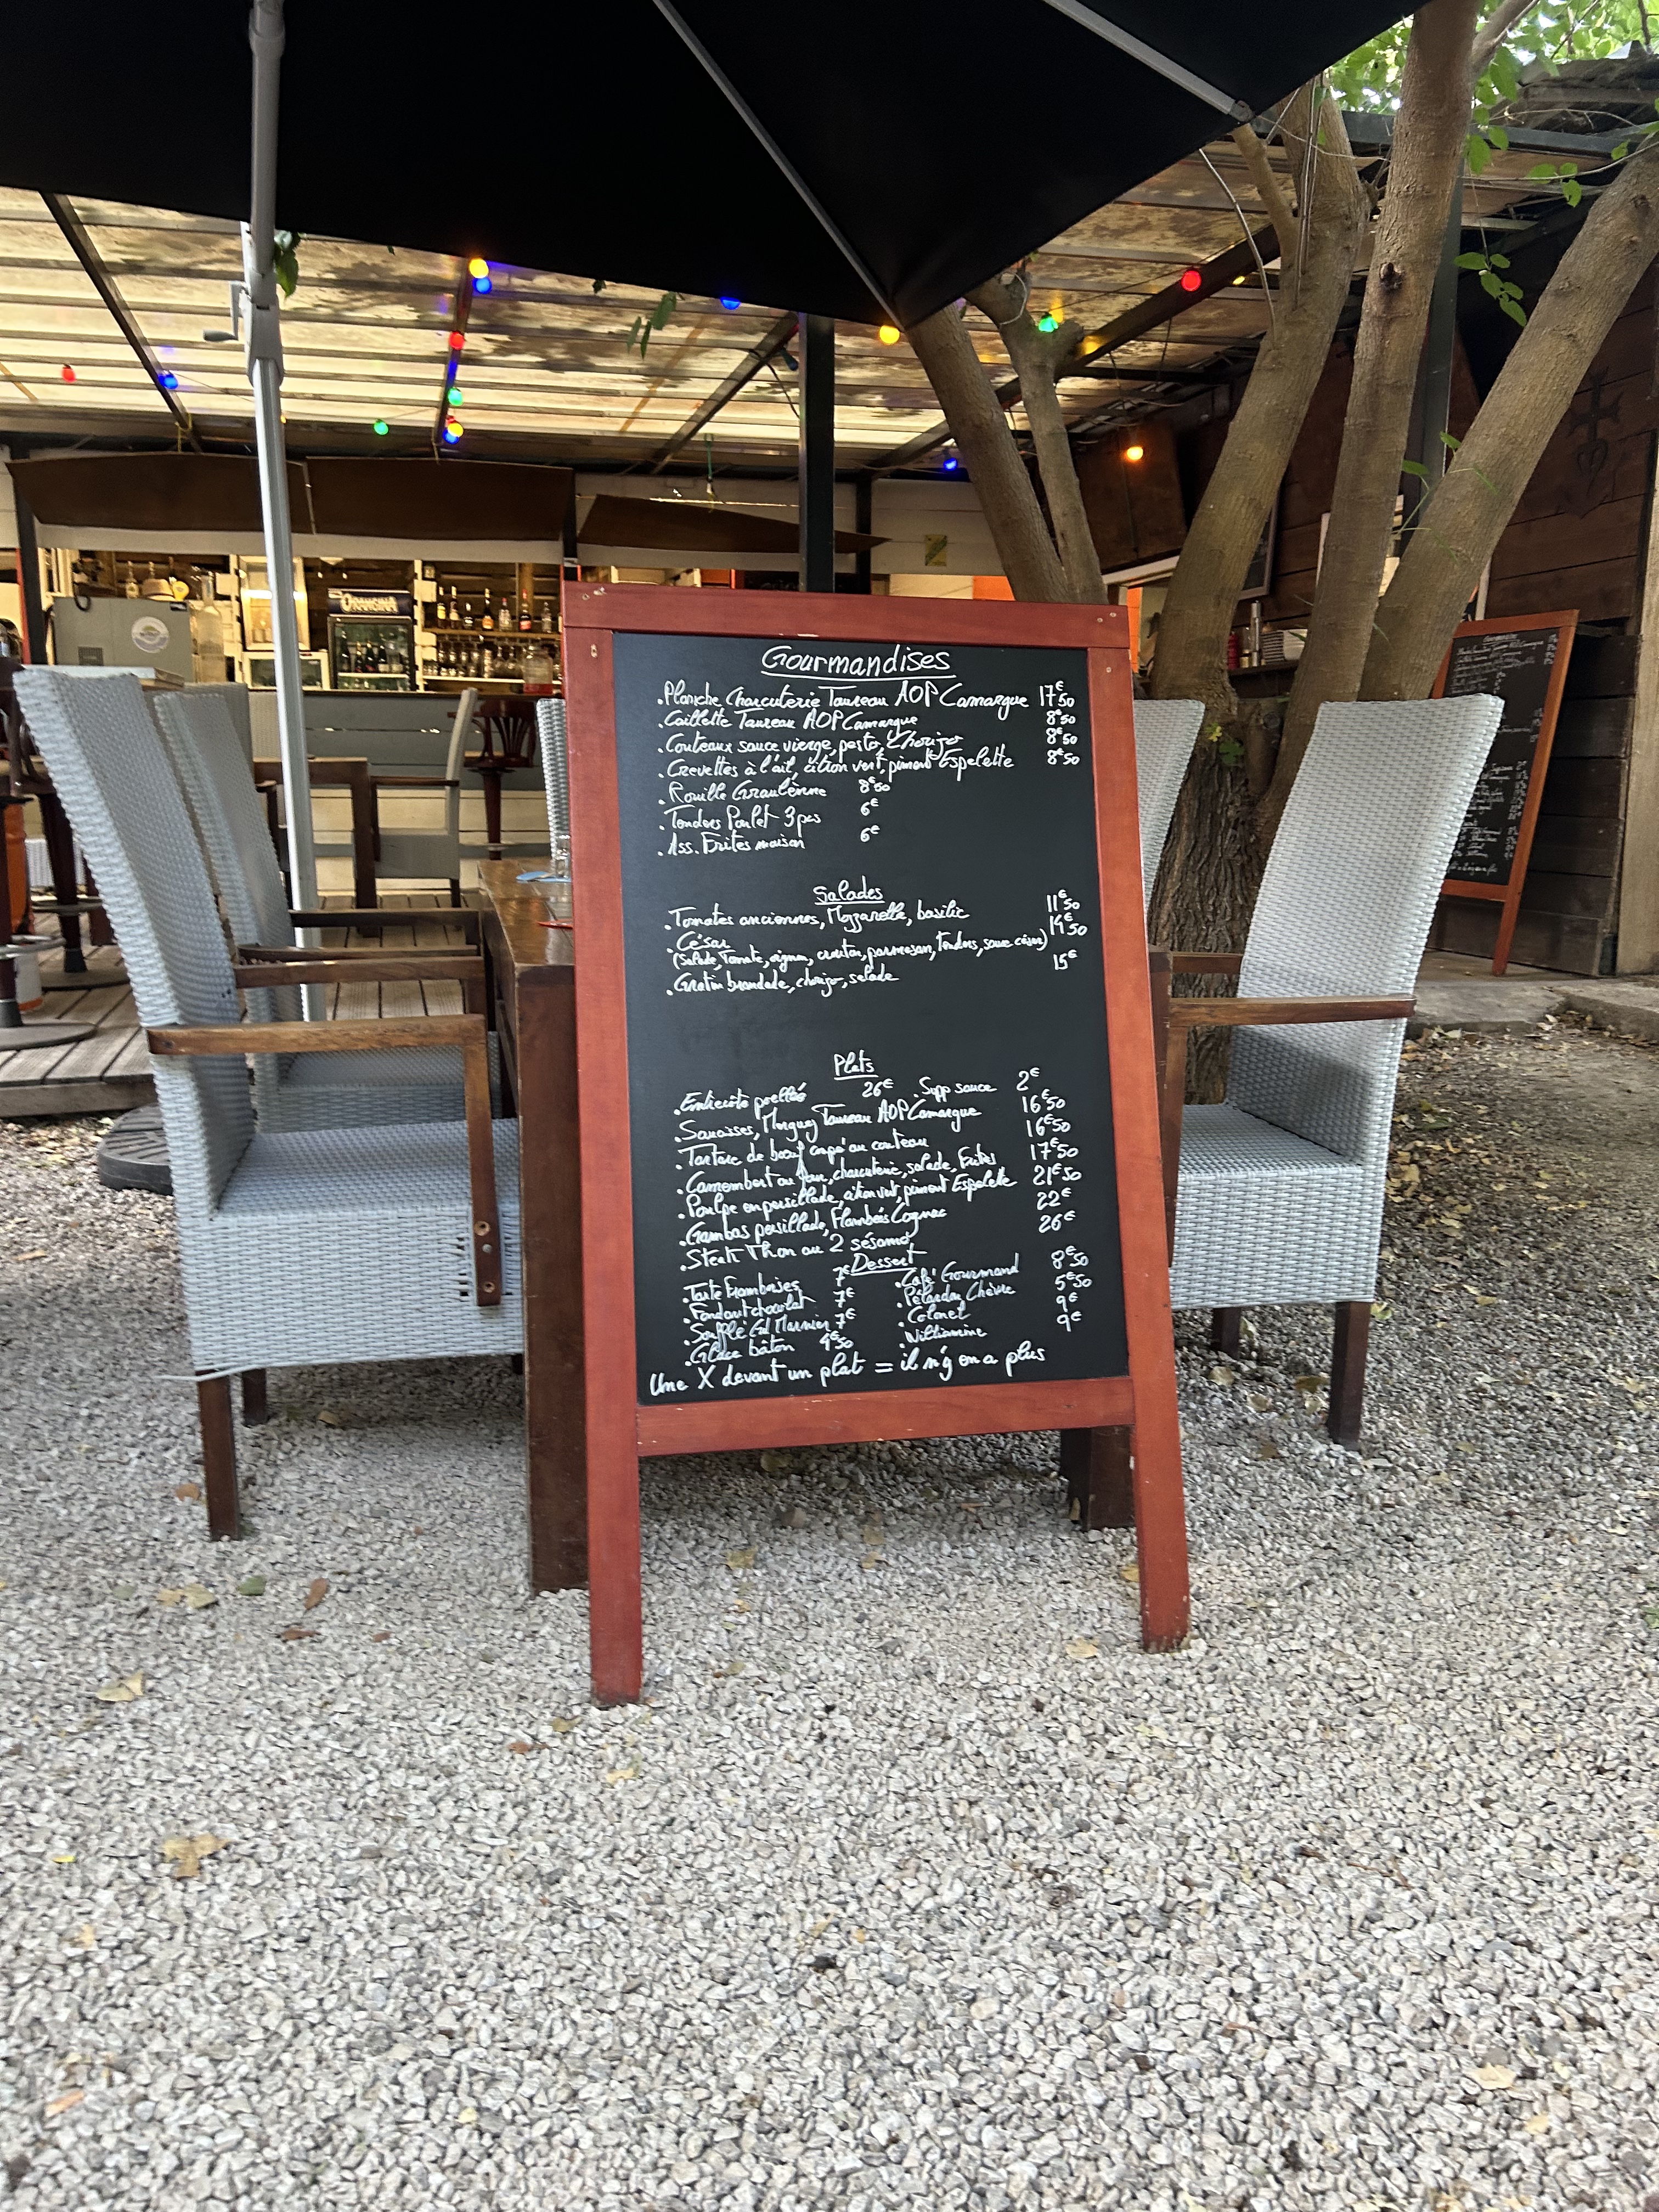 ORANGINA
Gourmandises
.Planche Charcuterie Taureau AOP Camargue 17€50
.Caillette Taureau AOP Camargue 8€50
.Couteaux sauce vierge, pesto, Chorizo 8€50
.Crevettes à l'ail, citron vert, piment Espelette 8€50
.Rouille Graulenne 8€50
.Tenders Poulet 3pcs 6€
.Ass. Frites maison 6€
Salades
.Tomates anciennes, Mozzarella, basilic 11€50
.César 14€50
(Salade, Tomate, oignon, crouton, parmesan, Tenders, sauce césar)
.Gratin brandade, chorizo, salade 15€
Plats
.Entrecôte poellée 26€ .Supp sauce 2€
.Saucisses, Merguez Taureau AOP Camargue 16€50
.Tartare de bœuf coupé au couteau 16€50
.Camembert au four, charcuterie, salade, Frites 17€50
.Poulpe en persillade, citron vert, piment Espelette 21€50
.Gambas persillade, Flambées Cognac 22€
.Steak Thon au 2 sésame 26€
Dessert
.Tarte Framboises 7€ .Café Gourmand 8€50
.Fondant chocolat 7€ .Pélardon Chèvre 5€50
.Soufflé Gd Marnier 7€ .Colonel 9€
.Glace bâton 4€50 .Williamine 9€
Une X devant un plat = il n'y en a plus